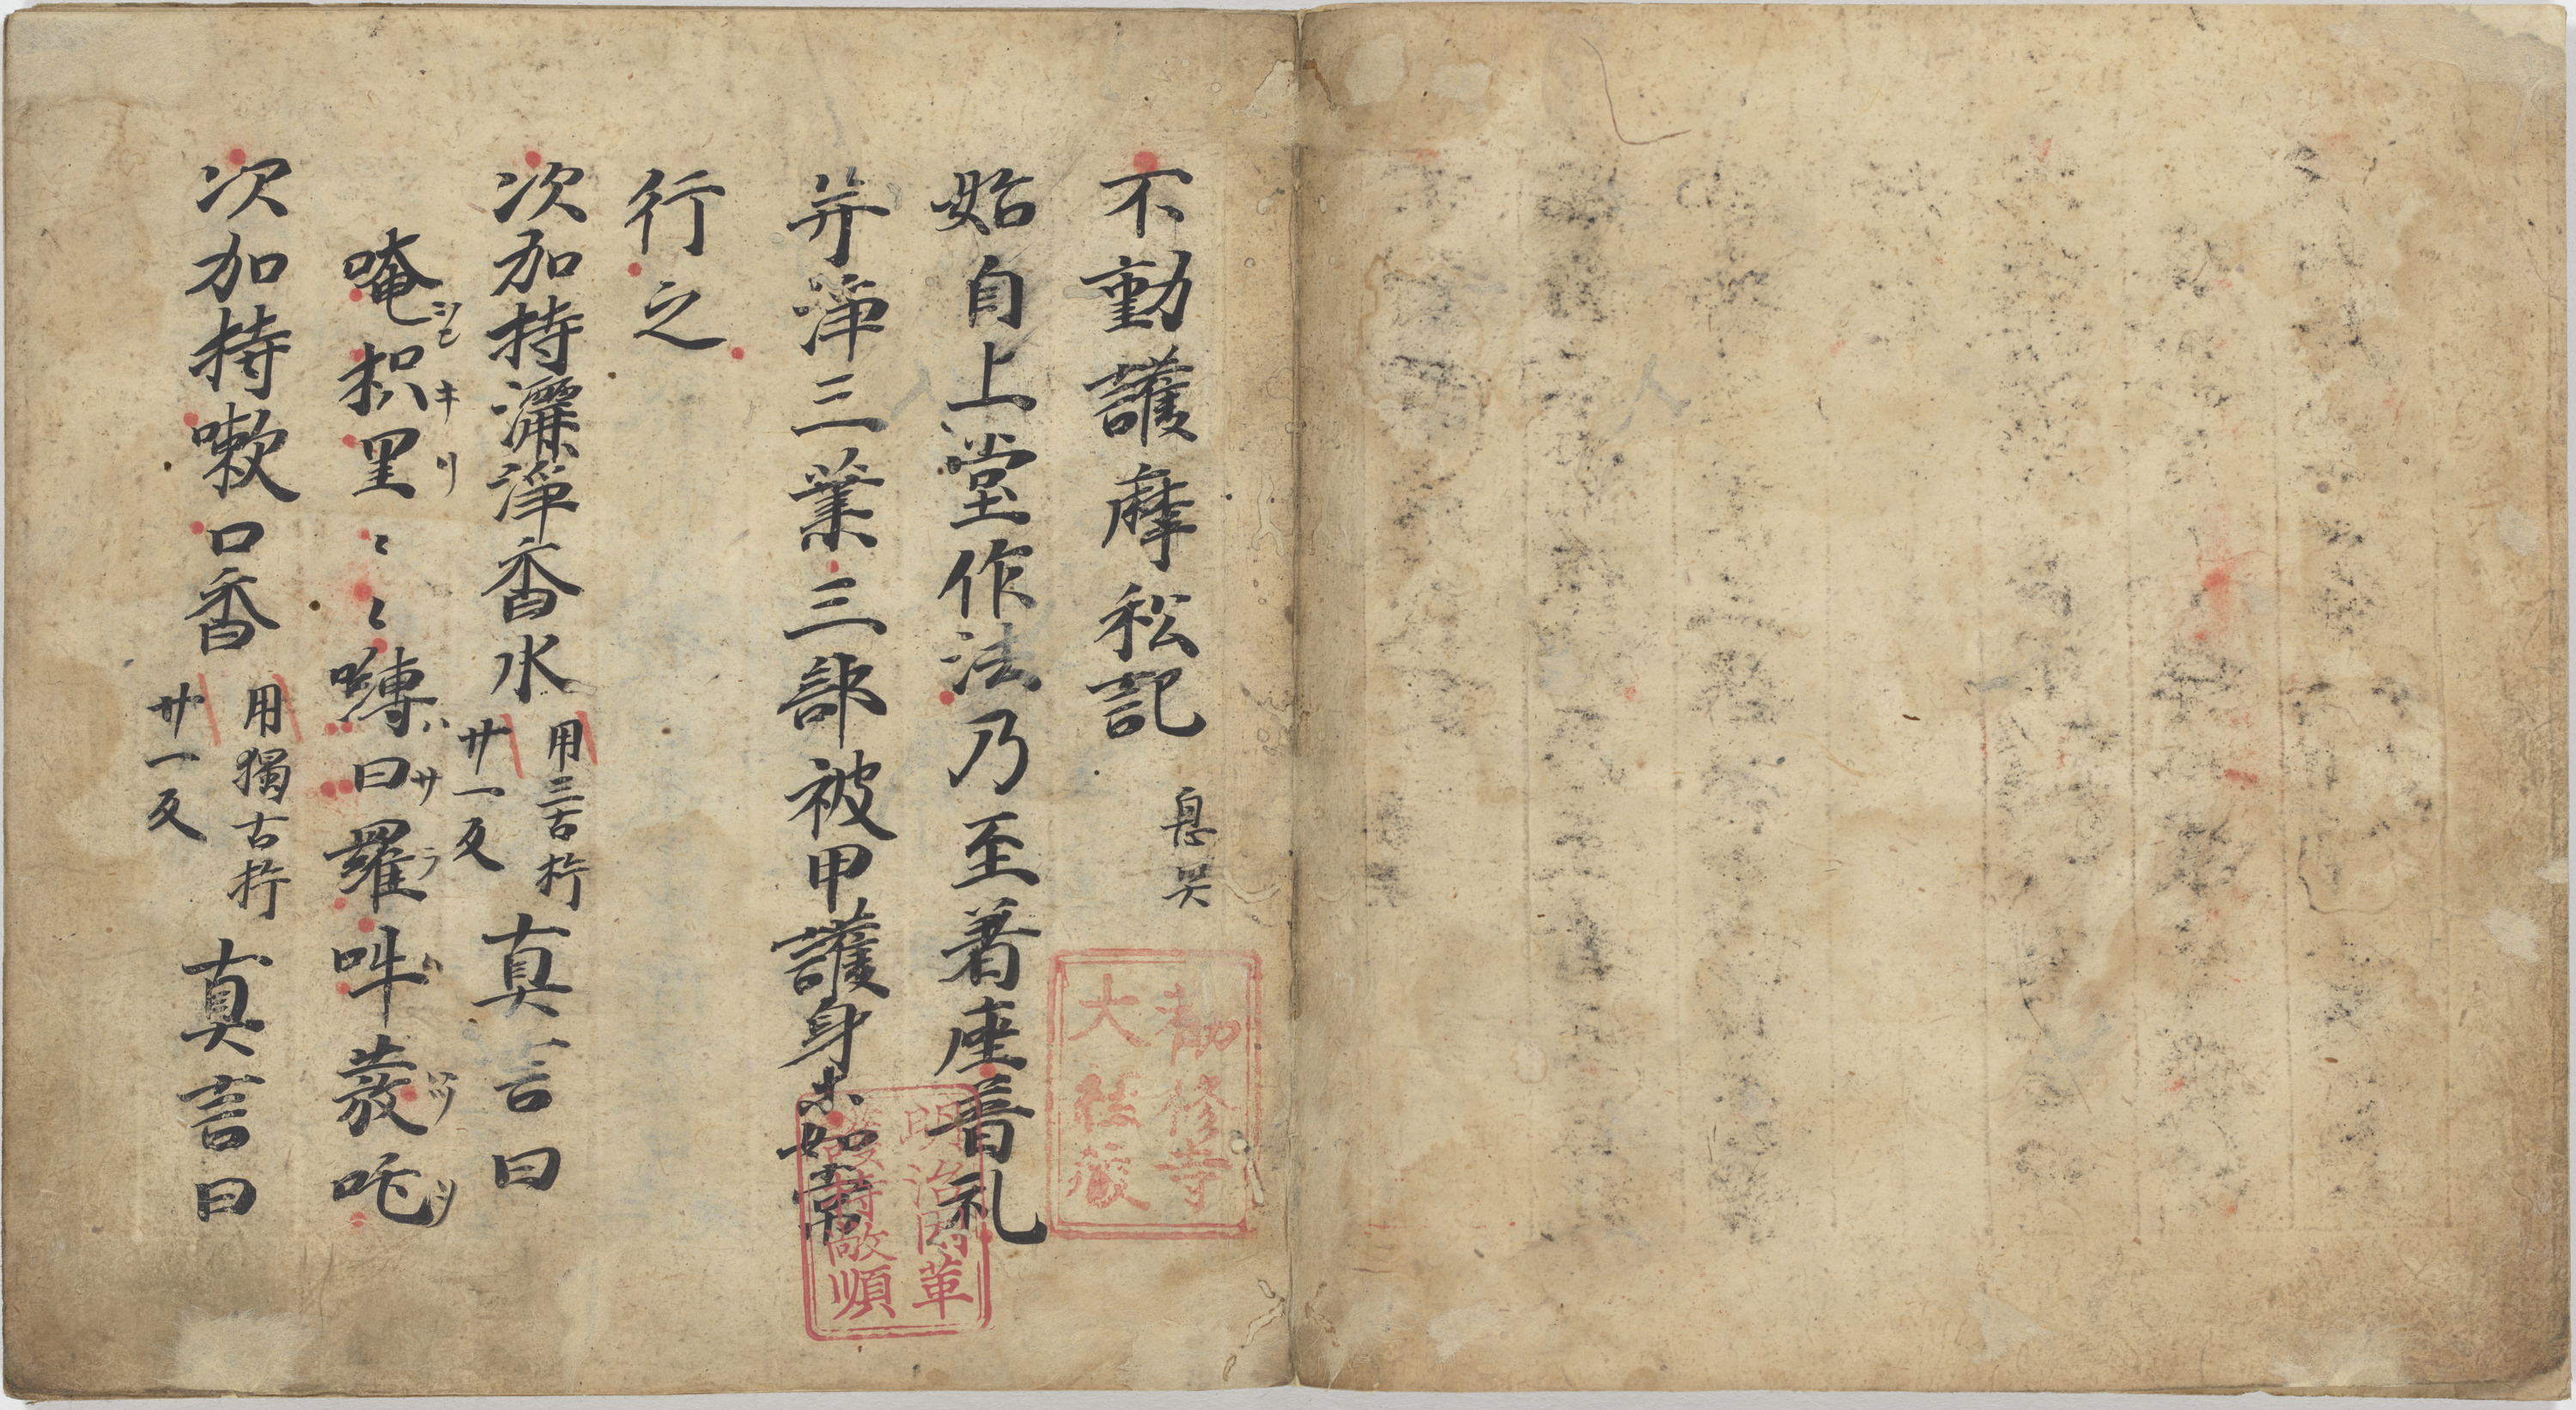 不動護摩私記 息災
始自上堂作法乃至着座普礼
并淨三業三部被甲護身等如常
行之
次加持灑淨香水 用三古杵 廿一反 真言曰
唵枳里〻〻嚩曰羅吽發吒
ジヒ キ リ バ サ ラ ウ ハツ タ
次加持嗽口香 用獨古杵 廿一反 真言曰
勸修寺
大經藏
明治因革
護持敵順